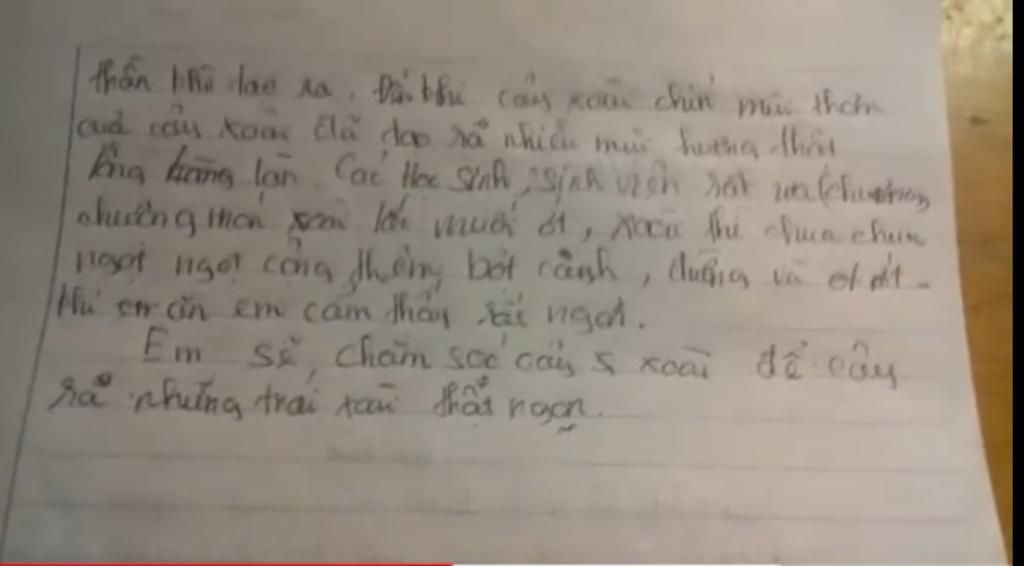 thân khô lao ra. Đến khi cây xoài chín mùi thơm
cuả cây xoài đã dạo rả nhiều mùi hương thơm
lừng lan. Các Học Sinh, Sinh viên rất
chuông món xoài lắc muối ớt, xoài thì chua chua
ngọt ngọt cộng thêm bột cảnh, đường và ớt.
khi em ăn em cảm thấy rất ngọt.
Em sẽ, chăm soć cây xoài để cây
rả những trái xoài thật ngọn.